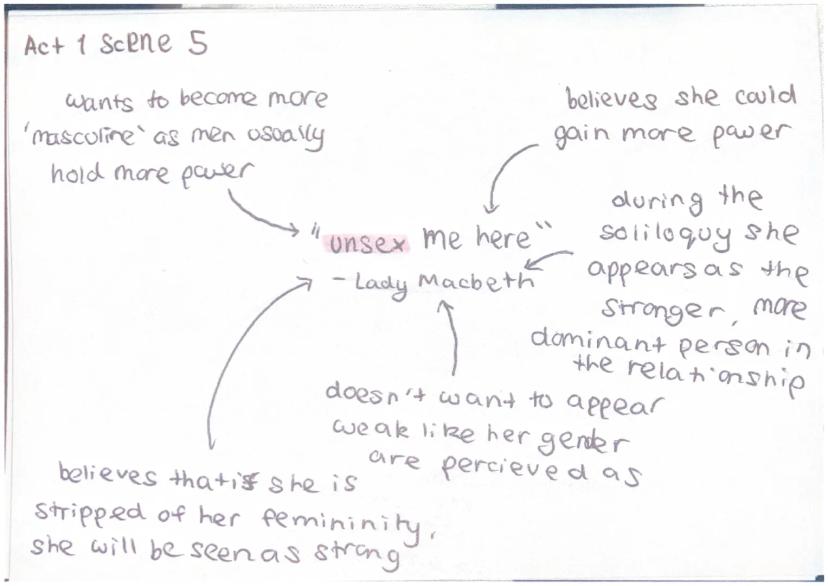 Act 1 Scene 5
wants to become more
'masculine' as men usually
hold more power
believes she could
gain more power
"unsex me here"
- Lady Macbeth
during the
soliloquy she
appears as the
stronger, more
dominant person in
the relationship
doesn't want to appear
weak like her gender
are percieved as
believes that if she is
stripped of her femininity,
she will be seen as strong